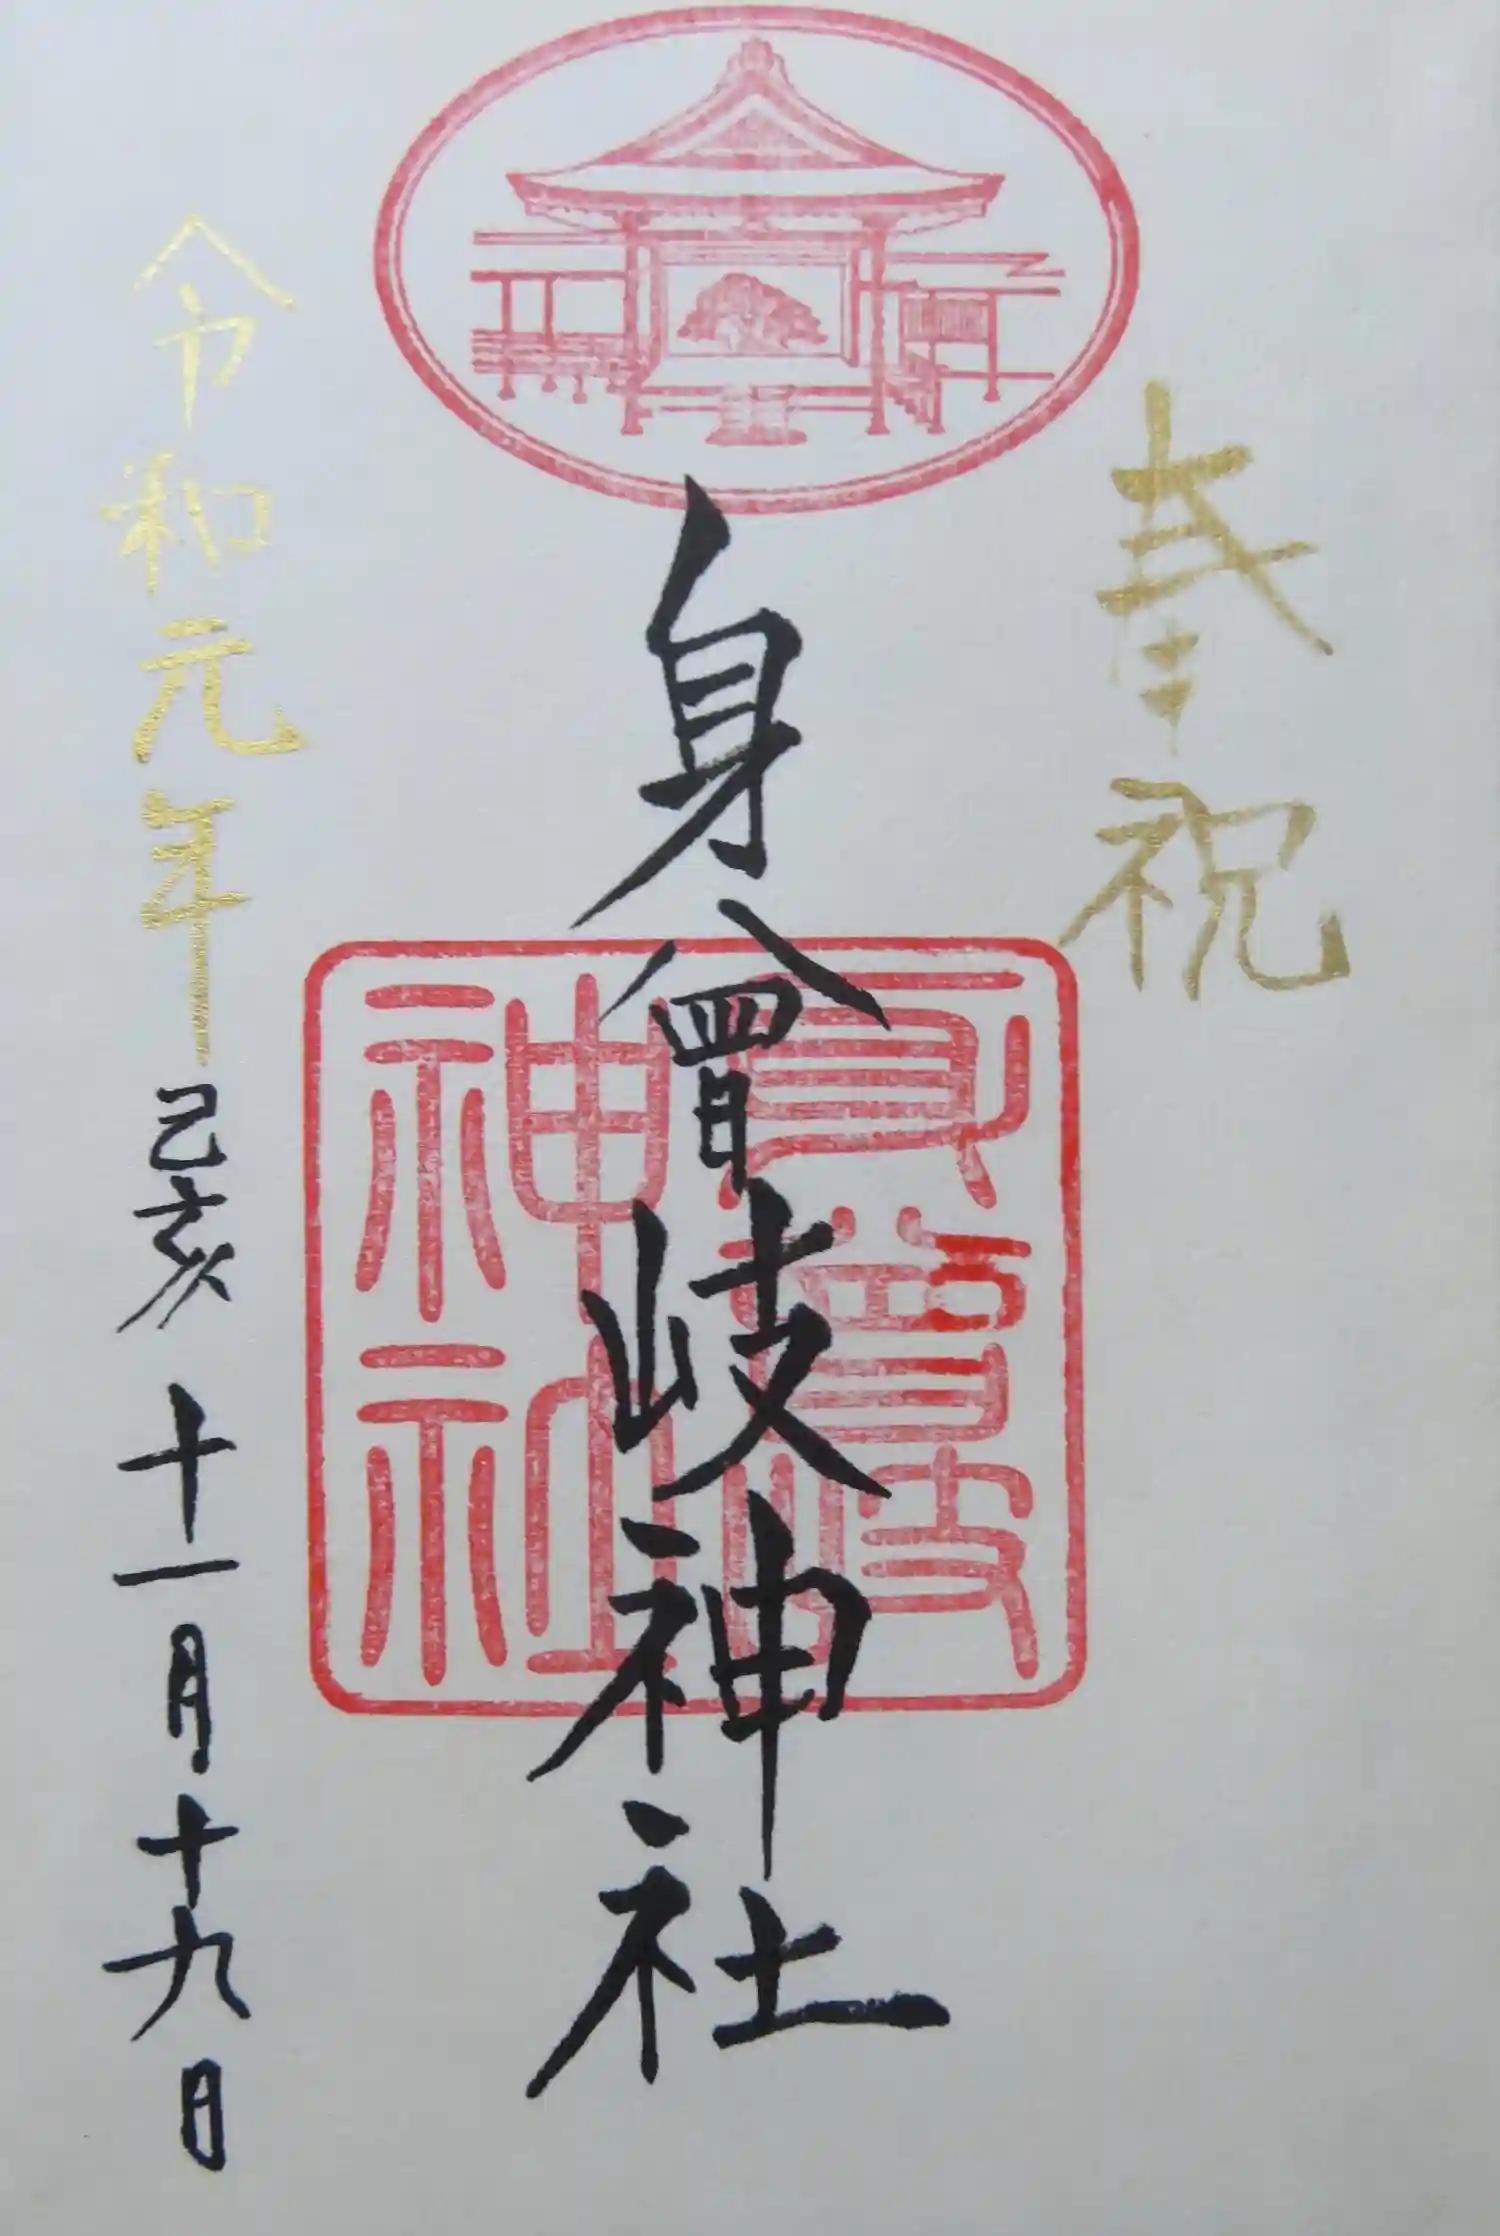 奉祝
身曾岐神社
身曾岐
神社
令和元年己亥十一月十九日